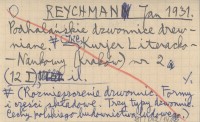 REYCHMAN Jan 1931.
Podhalańskie dzwonnice drew-
niane. Kuryer Literacko-
Naukowy (Kraków) nr 2
(12 I), il.
(Rozmieszczenie dzwonnic. Formy
i części składowe. Trzy typy dzwonnic.
Cechy polskiego budownictwa ludowego.)